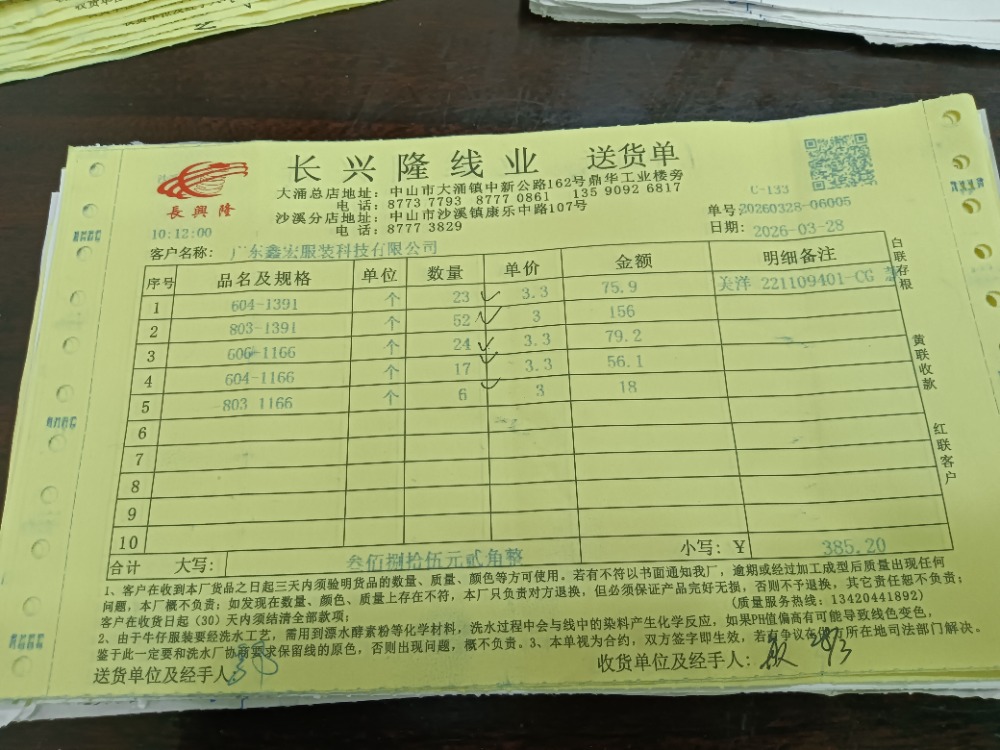 长兴隆线业 送货单
長興隆
大涌总店地址: 中山市大涌镇中新公路162号鼎华工业楼旁
电 话: 8773 7793 8777 0861 135 9092 6817
沙溪分店地址: 中山市沙溪镇康乐中路107号
电 话: 8777 3829
C-133
单号:20260328-06005
10:12:00
日期: 2026-03-28
客户名称: 广东鑫宏服装科技有限公司
序号 品名及规格 单位 数量 单价 金额 明细备注
1 604-1391 个 23 3.3 75.9 美洋 221109401-CG
2 803-1391 个 52 3 156
3 606-1166 个 24 3.3 79.2
4 604-1166 个 17 3.3 56.1
5 803 1166 个 6 3 18
6
7
8
9
10
合计 大写: 叁佰捌拾伍元贰角整 小写: ¥ 385.20
白联存根
黄联收款
红联客户
1、客户在收到本厂货品之日起三天内须验明货品的数量、质量、颜色等方可使用。若有不符以书面通知我厂，逾期或经过加工成型后质量出现任何
问题，本厂概不负责；如发现在数量、颜色、质量上存在不符，本厂只负责对方退换，但必须保证产品完好无损，否则不予退换，其它责任恕不负责；
客户在收货日起（30）天内须结清全部款项； (质量服务热线: 13420441892)
2、由于牛仔服装要经洗水工艺，需用到漂水酵素粉等化学材料，洗水过程中会与线中的染料产生化学反应，如果PH值偏高有可能导致线色变色，
鉴于此一定要和洗水厂协商要求保留线的原色，否则出现问题，概不负责。3、本单视为合约，双方签字即生效，若有争议在我方所在地司法部门解决。
送货单位及经手人:
收货单位及经手人: